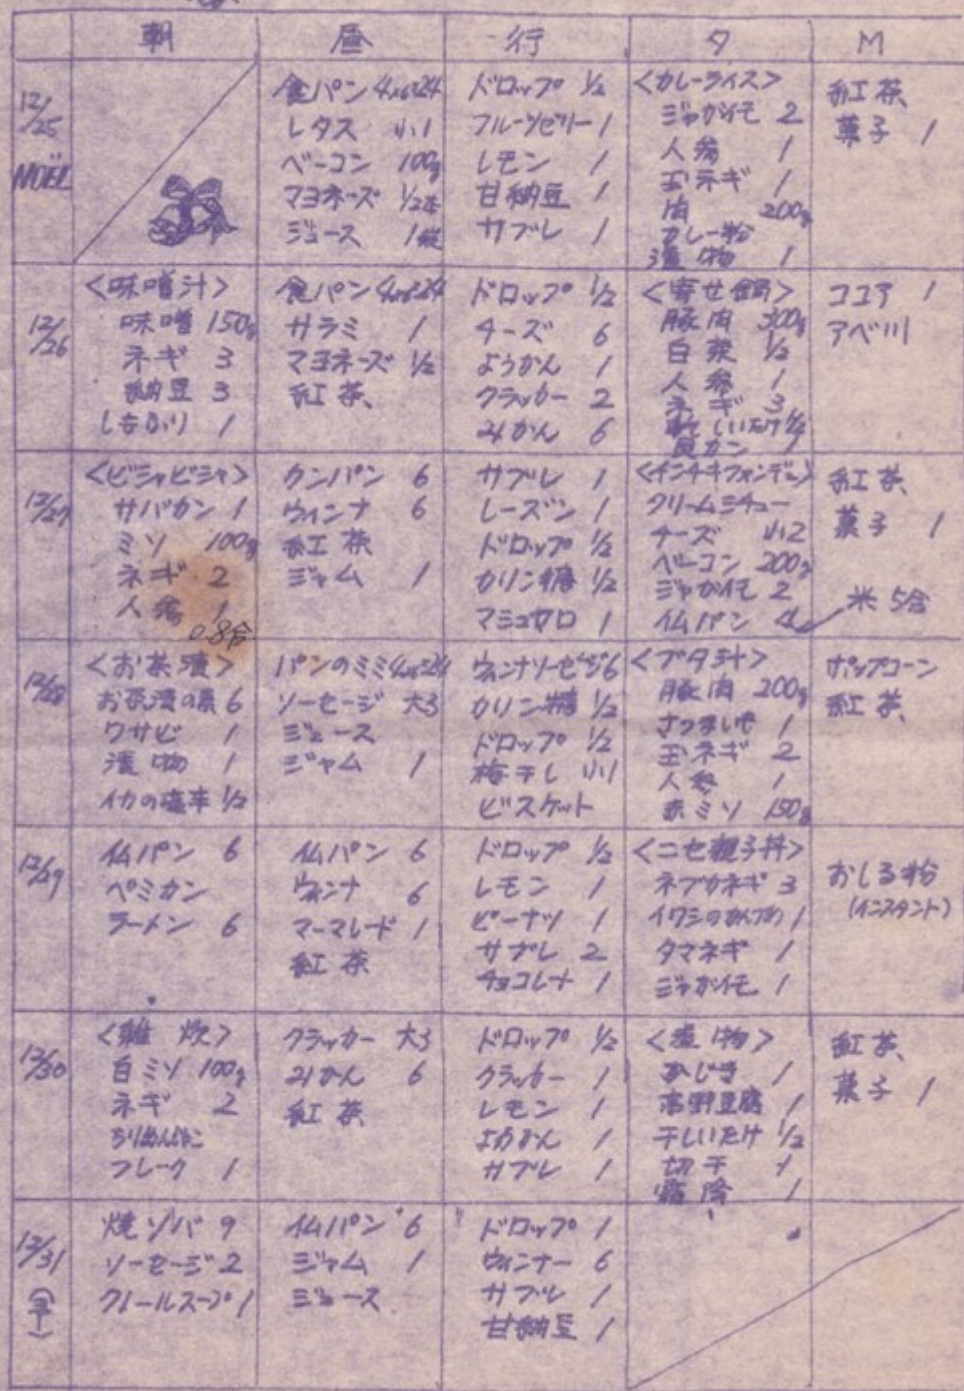 朝 昼 行 夕 M
12/25 NOËL
食パン 4×6=24
レタス 小1
ベーコン 100g
マヨネーズ 1/2本
ジュース 1缶
ドロップ 1/2
フルーツゼリー 1
レモン 1
甘納豆 1
サブレ 1
<カレーライス>
ジャガイモ 2
人参 1
玉ネギ 1
肉 200g
カレー粉
漬物 1
紅茶
菓子 1
12/26
<味噌汁>
味噌 150g
ネギ 3
納豆 3
1
食パン 4×6=24
サラミ 1
マヨネーズ 1/2
紅茶
ドロップ 1/2
チーズ 6
ようかん 1
クラッカー 2
みかん 6
<寄せ鍋>
豚肉 300g
白菜 1/2
人参 1
ネギ 3
しいたけ 1/2
1
ココア 1
アベ川
12/27
<ビシャビシャ>
サバカン 1
ミソ 100g
ネギ 2
人参 1
0.8合
クンパン 6
ウィンナ 6
紅茶
ジャム 1
サブレ 1
レーズン 1
ドロップ 1/2
カリン糖 1/2
マシュマロ 1
<インチキフォンデュ>
クリームシチュー
チーズ 小2
ベーコン 200g
ジャガイモ 2
仏パン 4
紅茶
菓子 1
米 5合
12/28
<お茶漬>
お茶漬の素 6
ワサビ 1
漬物 1
イカの塩辛 1/2
パンのミミ 4×6=24
ソーセージ 大3
ジュース
ジャム 1
ウィンナソーセージ 6
カリン糖 1/2
ドロップ 1/2
梅干し 小1
ビスケット
<ブタ汁>
豚肉 200g
さつまいも 1
玉ネギ 2
人参 1
赤ミソ 150g
ポップコーン
紅茶
12/29
仏パン 6
ペミカン
ラーメン 6
仏パン 6
ウィンナ 6
マーマレード 1
紅茶
ドロップ 1/2
レモン 1
ピーナツ 1
サブレ 2
チョコレート 1
<ニセ親子丼>
ネブカネギ 3
イワシのかんづめ 1
タマネギ 1
ジャガイモ 1
おしる粉
(インスタント)
12/30
<雑炊>
白ミソ 100g
ネギ 2
ちりめんじゃこ
フレーク 1
クラッカー 大3
みかん 6
紅茶
ドロップ 1/2
クラッカー 1
レモン 1
ようかん 1
サブレ 1
<煮物>
ひじき 1
高野豆腐 1
干しいたけ 1/2
切干 1
1
紅茶
菓子 1
12/31
焼ソバ 9
ソーセージ 2
クノールスープ 1
仏パン 6
ジャム 1
ジュース
ドロップ 1
ウィンナー 6
サブレ 1
甘納豆 1